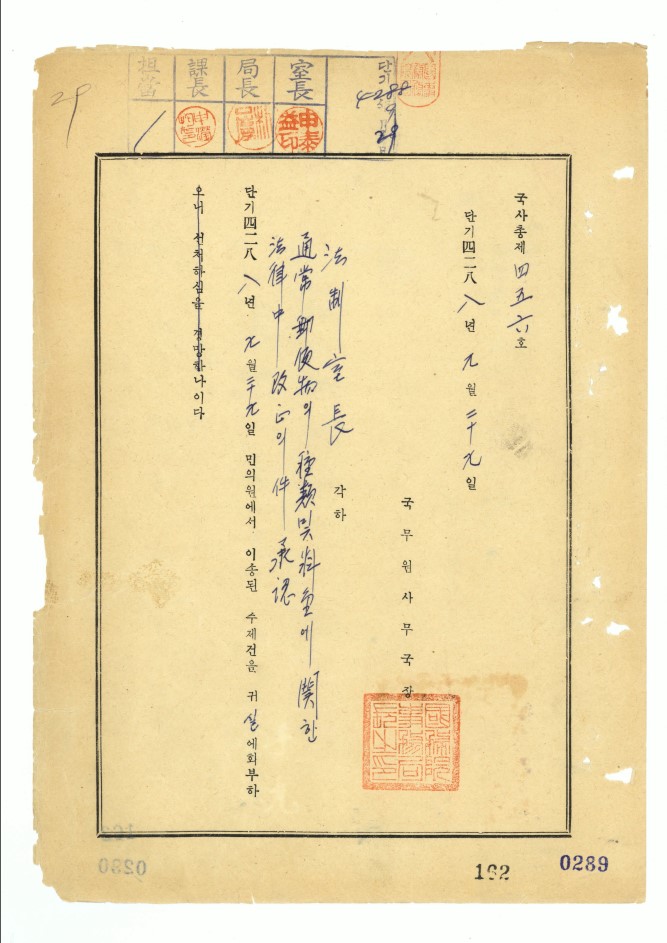 室長
局長
課長
担當
단기
4288
9
29
日
29
국사총제 四五六호
단기四二八八년 九월 二十九일
국무원사무국장
國務院事務局長之印
法制室長 각하
通常郵便物의 種類및料金에 關한
法律中改正의件 承認
단기四二八八년 九월二十九일 민의원에서 이송된 수제건을 귀실에회부하
오니 선처하심을 경망하나이다
162
0289